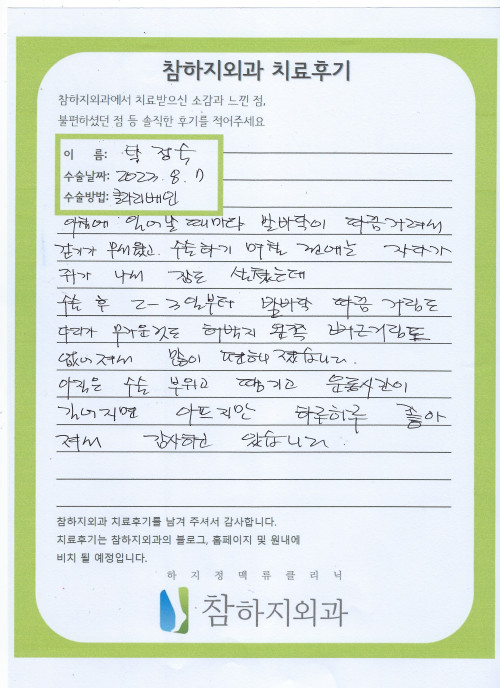 참하지외과 치료후기
참하지외과에서 치료받으신 소감과 느낀 점,
불편하셨던 점 등 솔직한 후기를 적어주세요
이 름: 정숙
수술날짜: 2023. 8. 7
수술방법: 클라리베인
아침에 일어날 때마다 발바닥이 따끔거려서
걷기가 무서웠고. 수술하기 며칠 전에는 자다가
쥐가 나서 잠도 설쳤는데
수술 후 2-3일부터 발바닥 따끔 거림도
다리가 무거운것도 허벅지 왼쪽 버근거림도
없어져서 많이 편해 졌습니다.
아직은 수술 부위고 땅기고 운동시간이
길어지면 아프지만 하루하루 좋아
져서 감사하고 있습니다.
참하지외과 치료후기를 남겨 주셔서 감사합니다.
치료후기는 참하지외과의 블로그, 홈페이지 및 원내에
비치 될 예정입니다.
하지정맥류클리닉
참하지외과